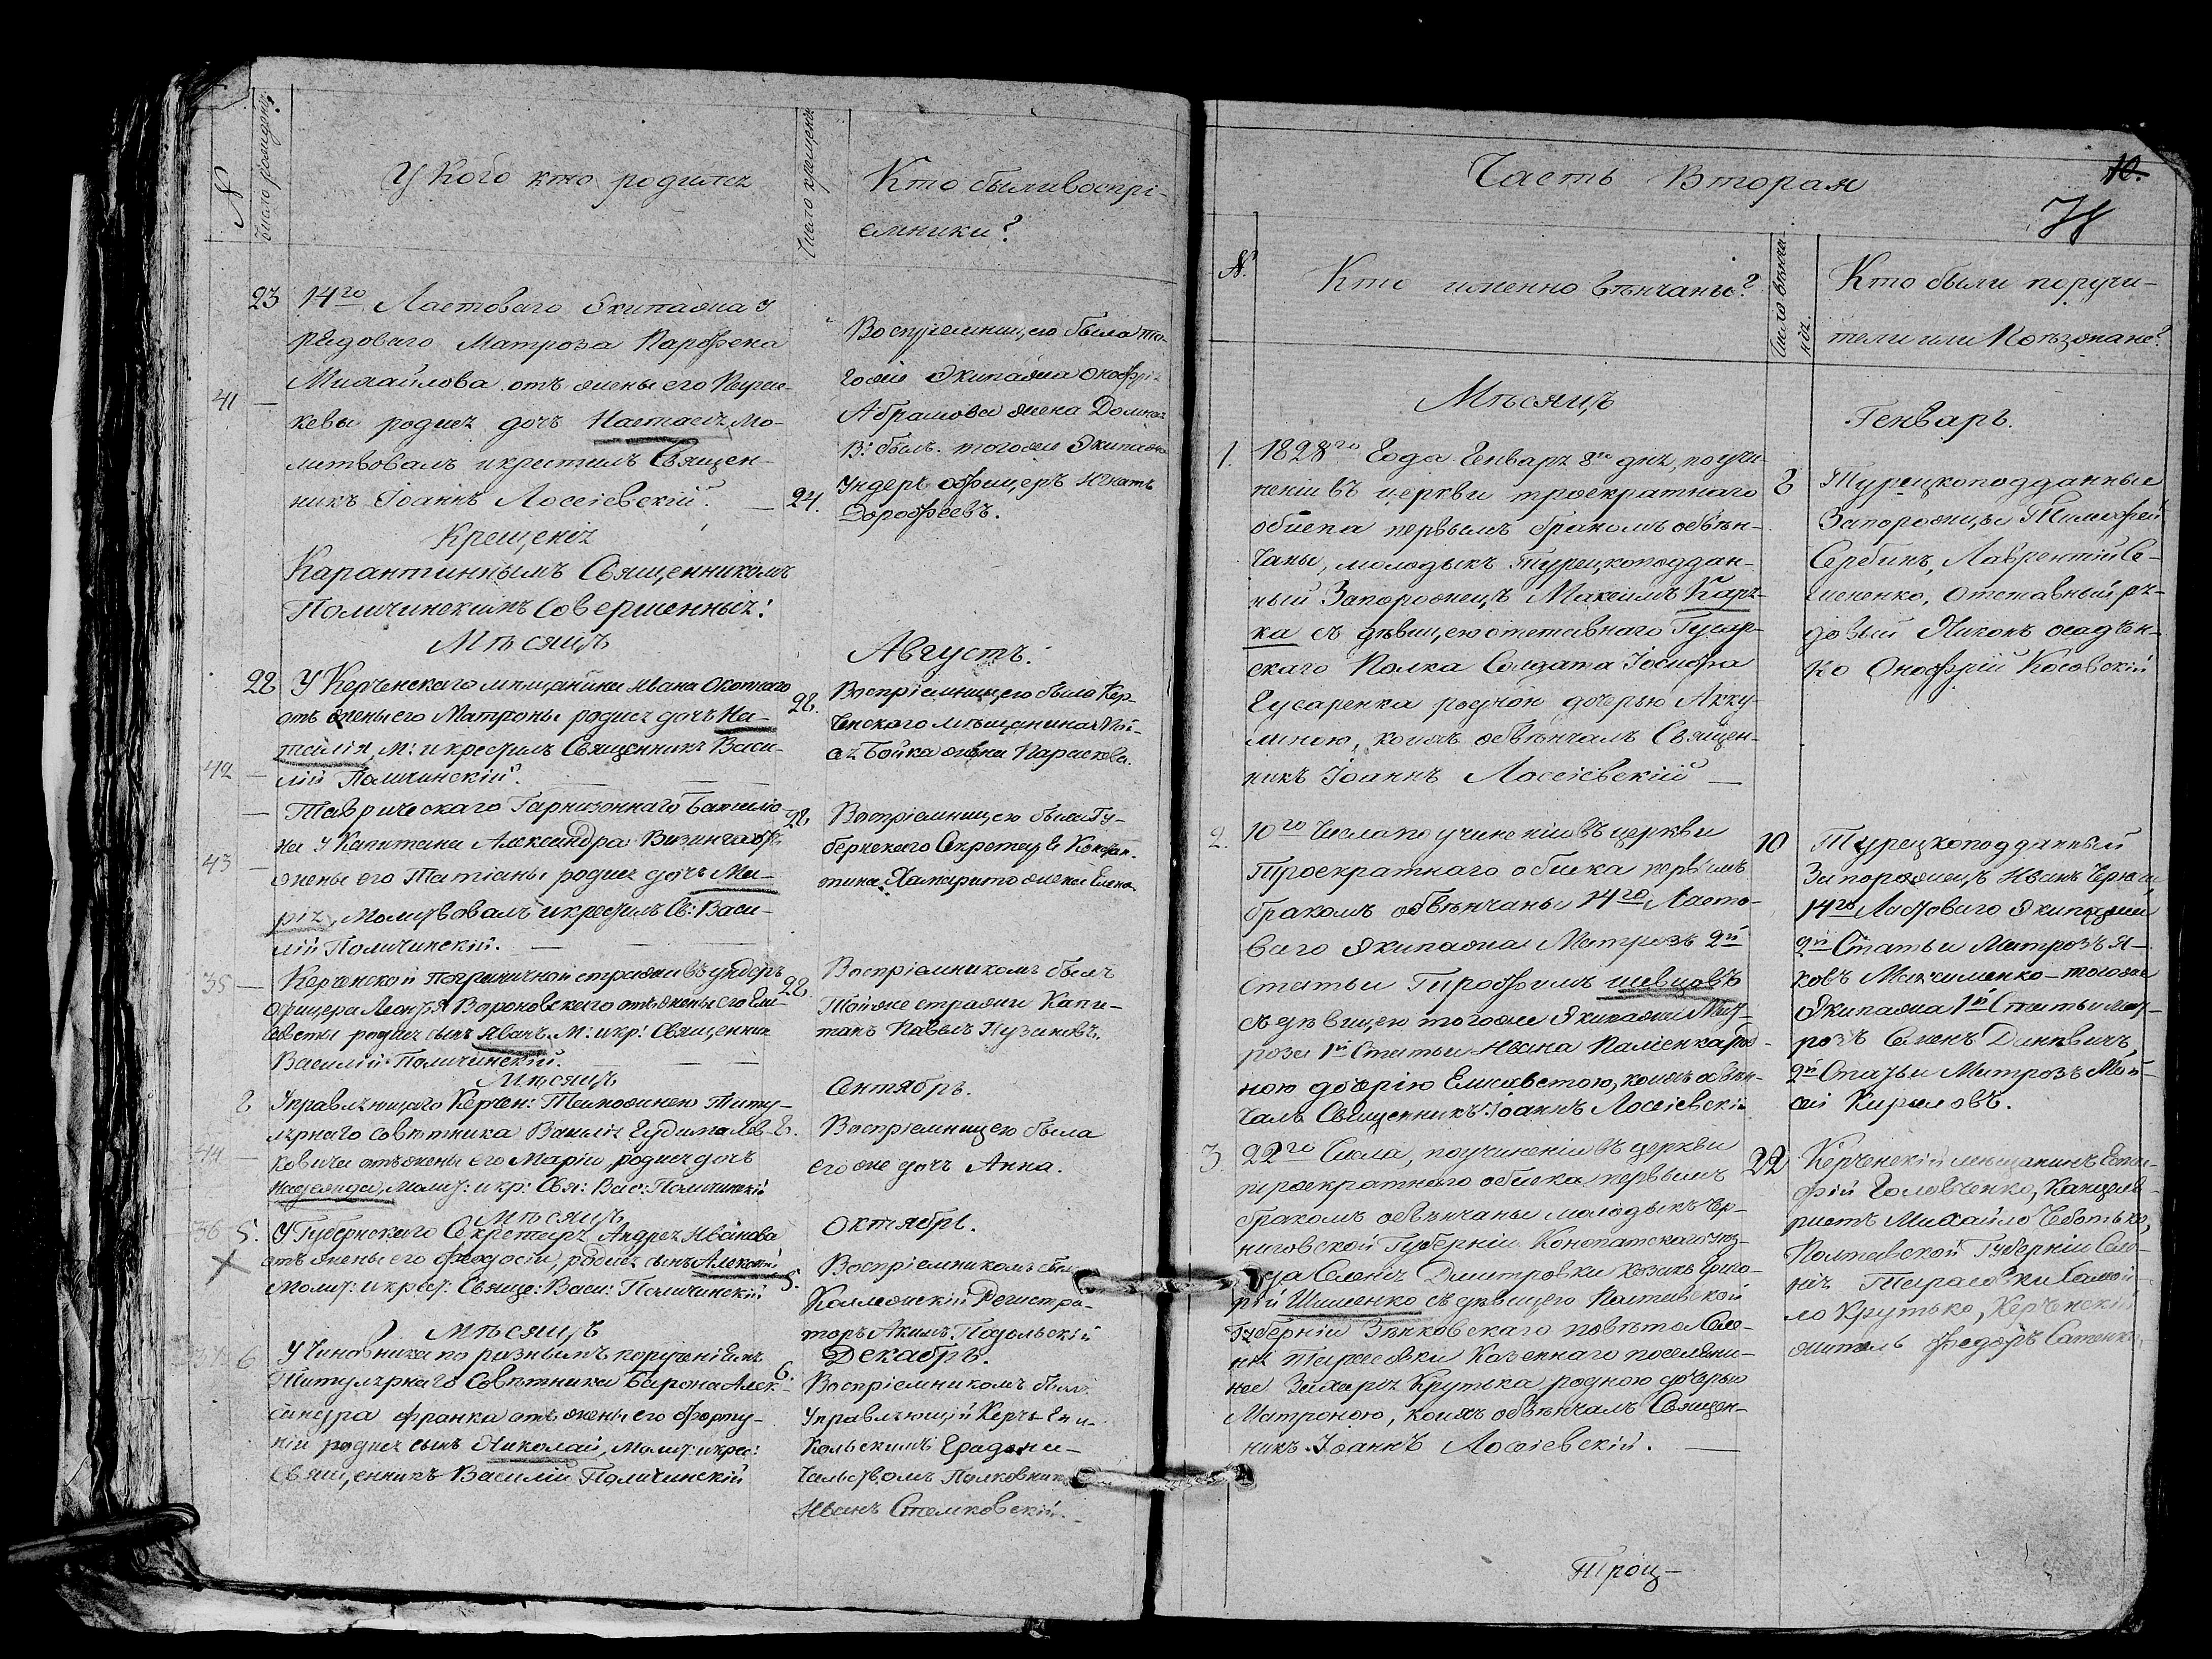 №
число рождения
У кого кто родился
число крещения
Кто были воспрі-
емники?
23
14го Ластоваго Экипажа у
рядоваго Матроза Парфена
Михайлова отъ жены его
41
кевы родися дочь Настасія, Мо-
литвовалъ и крестилъ Священ-
никъ Іоаннъ Лосѣевскій.
24.
Воспріемницею была то-
гоже Экипажа Онофрія
Абрамова жена Домна
В: былъ тогоже Экипажа
Ундеръ офицеръ Игнатъ
Дорофѣевъ.
Крещенія
Карантиннымъ Священникомъ
Поличинскимъ Совершенныя:
Мѣсяцъ
Августъ.
22
У Керченскаго мѣщанина Ивана Окопнаго
отъ жены его Матроны родися дочь На-
талія, М: и крестилъ Священникъ Васи-
42
лій Поличинскій.
26.
Воспріемницею была Кер-
ченскаго мѣщанина Мой-
сея Бойка жена Параскева.
Таврическаго Гарнизоннаго Баталіо-
на у Капитана Александра
43
жены его Татіаны родися дочь Ма-
рія, Молитвовалъ и крестилъ Св: Васи-
лій Поличинскій.
28.
Воспріемницею была Гу-
бернскаго Секретаря Констан-
тина жена Елена.
35
Керченской пограничной стражи въ ундеръ
офицера Вороновскаго отъ жены его Ели-
саветы родися сынъ Иванъ, М: и кр: Священник
Василій Поличинскій.
28
Воспріемникомъ былъ
Тойже стражи Капи-
танъ Павелъ Пузановъ.
Мѣсяцъ
Сентябрь.
2
Управляющаго Керчен: Таможнею Титу-
лярнаго совѣтника Василія Гудима Лев-
44
ковича отъ жены его Маріи родися дочь
Надежда, Молит: и кр: Свя: Вас: Поличинскій
8.
Воспріемницею была
его же дочь Анна.
Мѣсяцъ
Октябрь.
36
5.
У Губернскаго Секретаря Андрея Иванова
отъ жены его Феодосіи, родися сынъ Алексѣй
Молит: и крест: Свяще: Васи: Поличинскій
5.
Воспріемникомъ былъ
Коллежскій Регистра-
торъ Акимъ Подольскій
Мѣсяцъ
Декабрь.
6
У Чиновника по разнымъ порученіямъ
Титулярнаго Совѣтника Барона Алек-
сандра Франка отъ жены его Форту-
ніи родися сынъ Николай, Молит: и крес:
Священникъ Василій Поличинскій
6.
Воспріемникомъ былъ
Управляющій Керчь Ени-
Кольскимъ Градона-
чальствомъ Полковникъ
Иванъ Стемковскій.
Часть Вторая
10.
№
Кто именно вѣнчаны?
Число вѣнча-
нія.
Кто были поручи-
тели или Поѣзжане?
Мѣсяцъ
Генварь.
1.
1828го Года Генваря 8го дня, по учи-
неніи въ церкви троекратнаго
обыска первымъ бракомъ обвѣн-
чаны, молодыхъ Турецкоподдан-
ный Запорожецъ Максимъ Каря-
ка съ дѣвицею отставнаго Гусар-
скаго Полка Солдата Іосифа
Гусаренка родной дочерью Аку-
линою, коихъ обвѣнчалъ Священ-
никъ Іоаннъ Лосѣевскій
8
Турецкоподданные
Запорожцы Тимофей
Сербинъ, Лаврентій Се-
мененко, отставный ря-
довый Никонъ
ко Онофрій Косовскій
2.
10го Числа по учиненіи въ церкви
Троекратнаго обыска первымъ
бракомъ обвѣнчаны 14го Ласто-
ваго Экипажа Матрозъ 2й
статьи Трофимъ Шевцовъ
съ дѣвицею тогоже Экипажа Мат-
роза 1й Статьи Ивана Паліенка род-
ною дочерію Елисаветою, коихъ обвѣн-
чалъ Священникъ Іоаннъ Лосѣевскій
10
Турецкоподданный
Запорожецъ Иванъ
14го Ластоваго Экипажа
2й Статьи Матрозъ Я-
ковъ Максименко – тогоже
Экипажа 1й Статьи мат-
розъ Семенъ Динкевичъ,
2й Статьи Матрозъ Мой-
сей Кириловъ.
3.
22го Числа, по учиненіи въ церкви
троекратнаго обыска, первымъ
бракомъ обвѣнчаны молодыхъ Чер-
ниговской Губерніи Конотапскаго уез-
да Селенія Дмитровки козакъ Григо-
рій Шименко съ дѣвицею Полтавской
Губерніи Зѣнковскаго повѣта Селе-
нія Тарасовки Казеннаго поселяни-
на Захарія Крутька родною дочерью
Матроною, коихъ обвѣнчалъ Священ-
никъ Іоаннъ Лосѣевскій.
22
Керченскій мѣщанинъ
Головченко, Канцеля-
ристъ Михайло
Полтавской Губерніи Селе-
нія Тарасовки
ло Крутько, Керченскій
житель Федоръ
Троц-